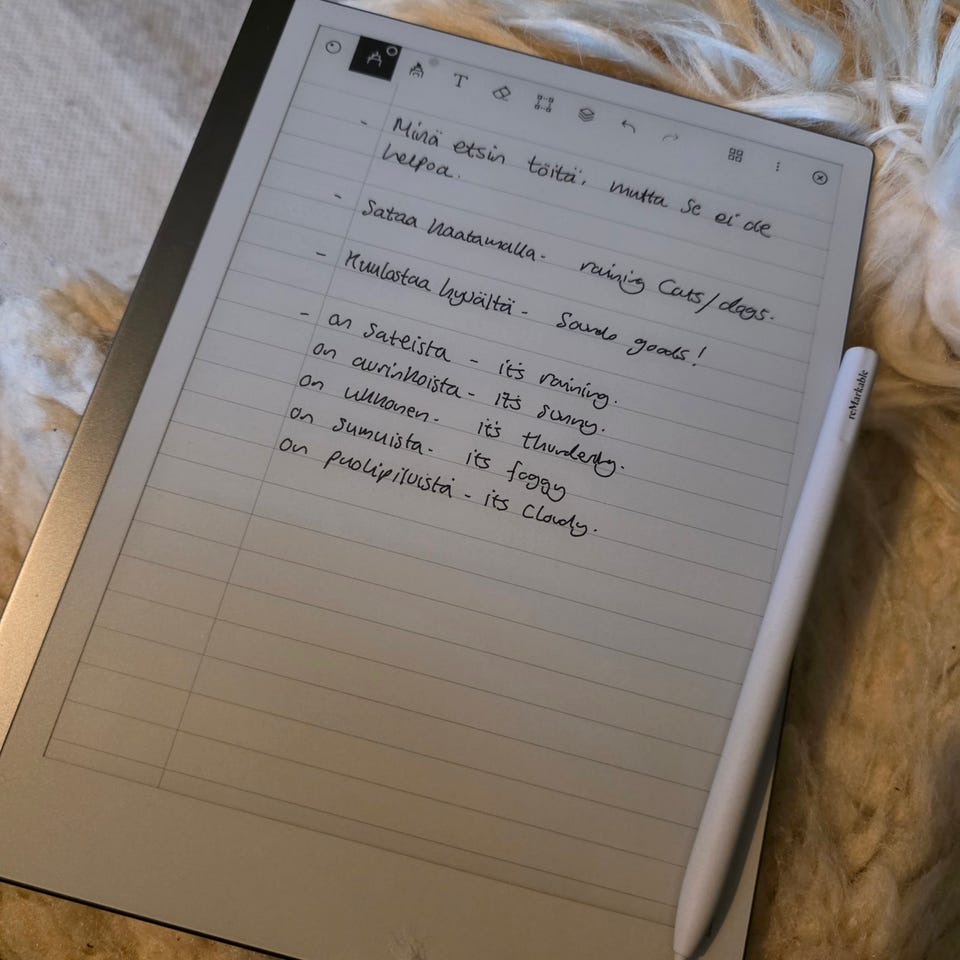 T
- Minä etsin töitä, mutta se ei ole
helpoa.
- Sataa kaatamalla - raining Cats/dogs.
- Kuulostaa hyvältä - Sounds goods!
- on sateista - it's raining.
on aurinkoista - it's sunny.
on ukkonen - it's thunderdy.
on sumuista - its foggy
on puolipiluistä - its Cloudy.
reMarkable